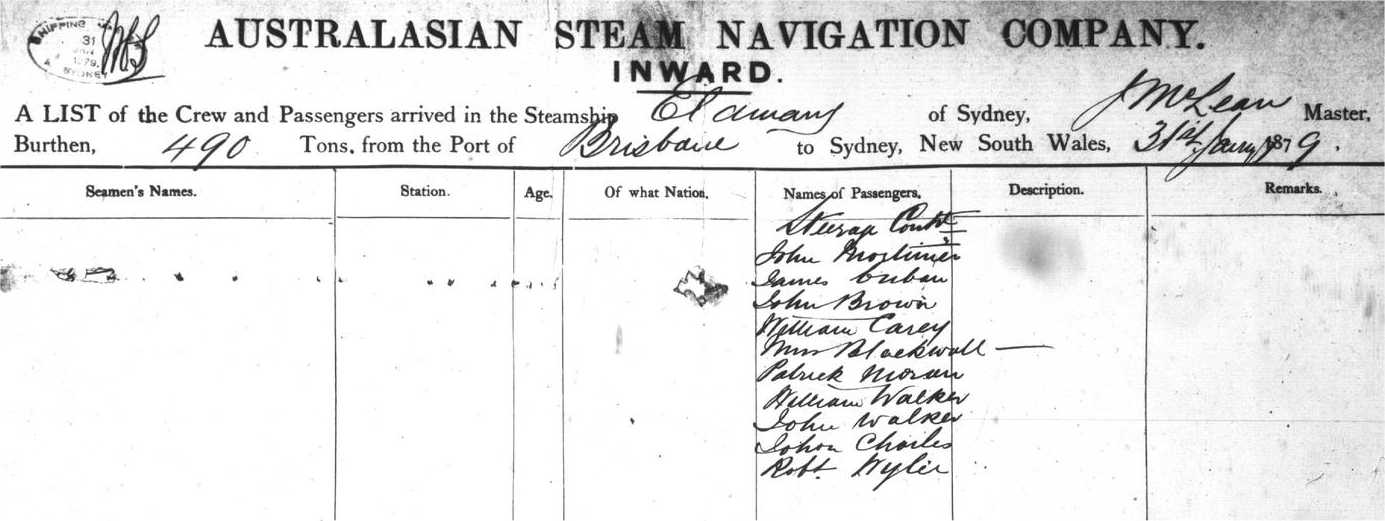 SHIPPING
31
1879
SYDNEY
AUSTRALASIAN STEAM NAVIGATION COMPANY.
INWARD.
A LIST of the Crew and Passengers arrived in the Steamship of Sydney, J McLean Master,
Burthen, 490 Tons, from the Port of Brisbane to Sydney, New South Wales, 31st Jany 1879.
Seamen's Names. Station. Age. Of what Nation. Names of Passengers. Description. Remarks.
Steerage
John Mortimer
James
John Brown
William Carey
Blackwall
Patrick Moran
William Walker
John Walker
John Charles
Robt. Wylie